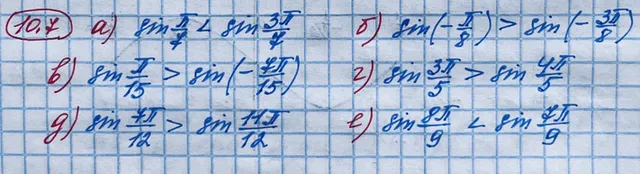 10.7 а) sin π/7 < sin 3π/7 б) sin(-π/8) > sin(-3π/8)
в) sin π/15 > sin(-7π/15) г) sin 3π/5 > sin 4π/5
д) sin 7π/12 > sin 11π/12 е) sin 8π/9 < sin 7π/9